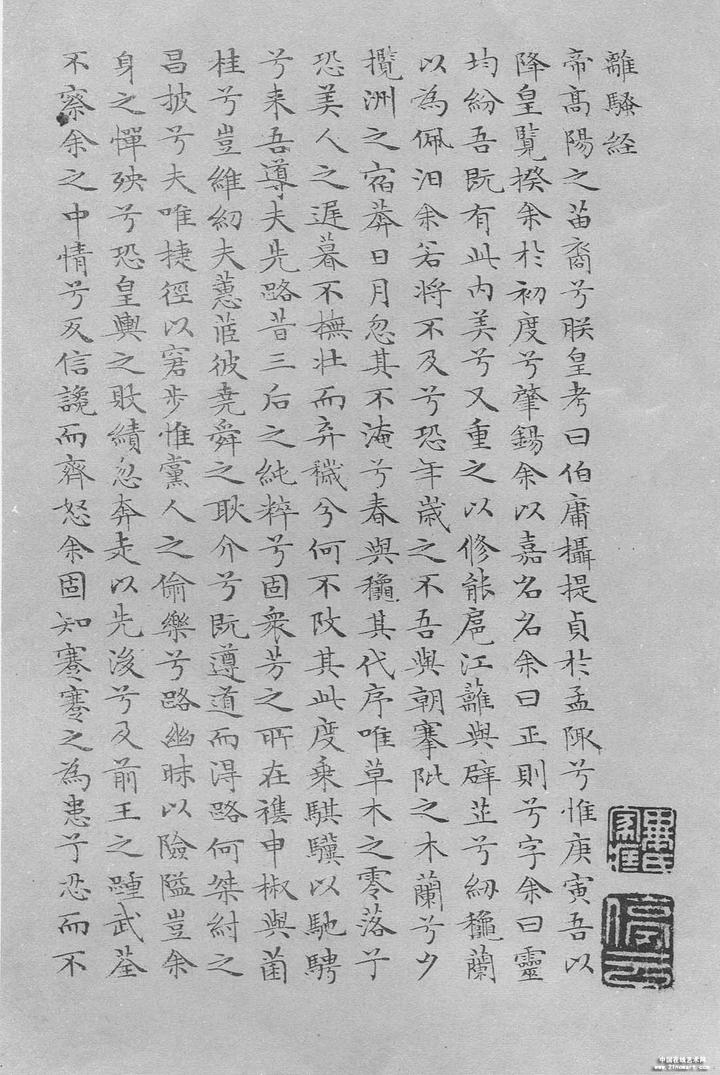 離騷経
帝髙陽之苗裔兮朕皇考曰伯庸攝提貞於孟陬兮惟庚寅吾以
降皇覽揆余於初度兮肇錫余以嘉名名余曰正則兮字余曰靈
均紛吾既有此内美兮又重之以修能扈江蘺與辟芷兮紉龝蘭
以為佩汩余若將不及兮恐年歲之不吾與朝搴阰之木蘭兮夕
攬洲之宿莽日月忽其不淹兮春與龝其代序唯草木之零落兮
恐美人之遲暮不撫壯而弃穢兮何不改其此度乘騏驥以馳騁
兮来吾導夫先路昔三后之純粹兮固衆芳之所在襍申椒與菌
桂兮豈維紉夫蕙茝彼堯舜之耿介兮既遵道而得路何桀紂之
昌披兮夫唯捷徑以窘步惟黨人之偷樂兮路幽昧以險隘豈余
身之憚殃兮恐皇輿之敗績忽奔走以先後兮及前王之踵武荃
不察余之中情兮反信讒而齊怒余固知謇謇之為患兮忍而不
停雲
中国在线艺术网
www.21nowart.com